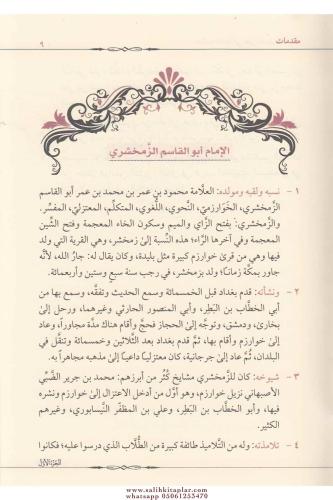 مقدمات
٩
الإمام أبو القاسم الزَّمخشري
١ - نسبه ولقبه ومولده: العلَّامة محمود بن عمر بن محمد بن عمر أبو القاسم
الزَّمخشري، الخَوارزميّ، النَّحوي، اللُّغوي، المتكلِّم، المعتزليّ، المفسِّر.
والزَّمخشري: بفتح الزَّاي والميم وسكون الخاء المعجمة وفتح الشِّين
المعجمة وفي آخرها الرَّاء؛ هذه النِّسبة إلىٰ زمخشر، وهي القرية التي ولد
فيها وهي من قرىٰ خوارزم كبيرة مثل بليدة، وكان يقال له: جارُ الله، لأنَّه
جاور بمكَّة زمانًا؛ ولد بزمخشر، في رجب سنة سبع وستين وأربعمائة.
٢ - ونشأته: قدم بغداد قبل الخمسمائة وسمع الحديث وتفقَّه، وسمع بها من
أبي الخطَّاب بن البَطِر، وأبي المنصور الحارثي وغيرهما، ورحل إلىٰ
بخارىٰ، ودمشق، وتوجَّه إلىٰ الحجاز فحجَّ وأقام هناك مدَّة مجاوراً، وعاد
إلىٰ خوارزم وأقام بها، ثمَّ قدم بغداد بعد الثَّلاثين وخمسمائة وتنقَّل في
البلدان، ثمَّ عاد إلىٰ جرجانية، كان معتزليًّا داعيًا إلىٰ مذهبه مجاهراً به.
٣ - شيوخه: كان للزَّمخشري مشايخ كُثُر من أبرزهم: محمد بن جرير الضَّبِّي
الأصبهاني نزيل خوارزم، وهو أوَّل من أدخل الاعتزال إلىٰ خوارزم ونشره
فيها، وأبو الخطَّاب بن البَطِر، وعلي بن المظفَّر النِّيسابوري، وغيرهم
الكثير.
٤ - تلامذته: وله من التَّلاميذ طائفة كبيرة من الطُّلاب الذي درسوا عليه؛ فكانوا
الجزء الأول
www.salihkitaplar.com
whatsapp 05061253470